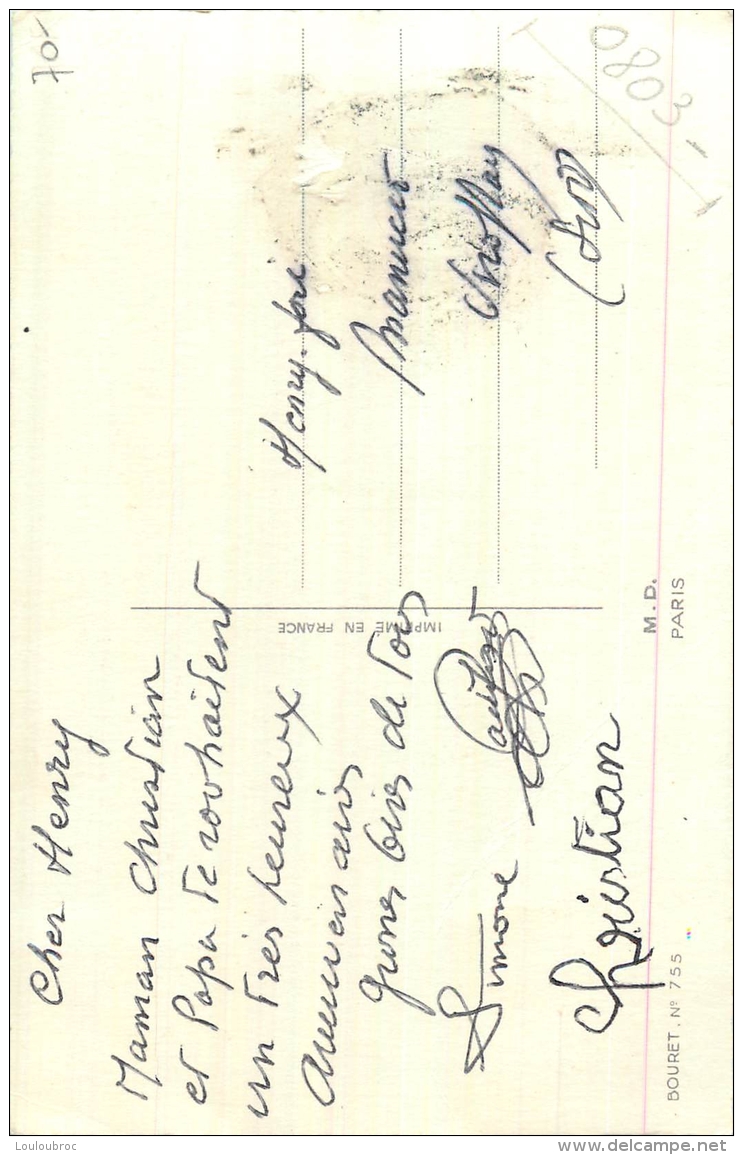 70-
3080
Cher Henry
Maman Christian
et Papa te souhaitent
un très heureux
Anniversaire
Grosses bises de tous
Simone
Christian
Henry-
IMPRIMÉ EN FRANCE
M.D.
PARIS
BOURET. Nº 755
Louloubroc
www.delcampe.net